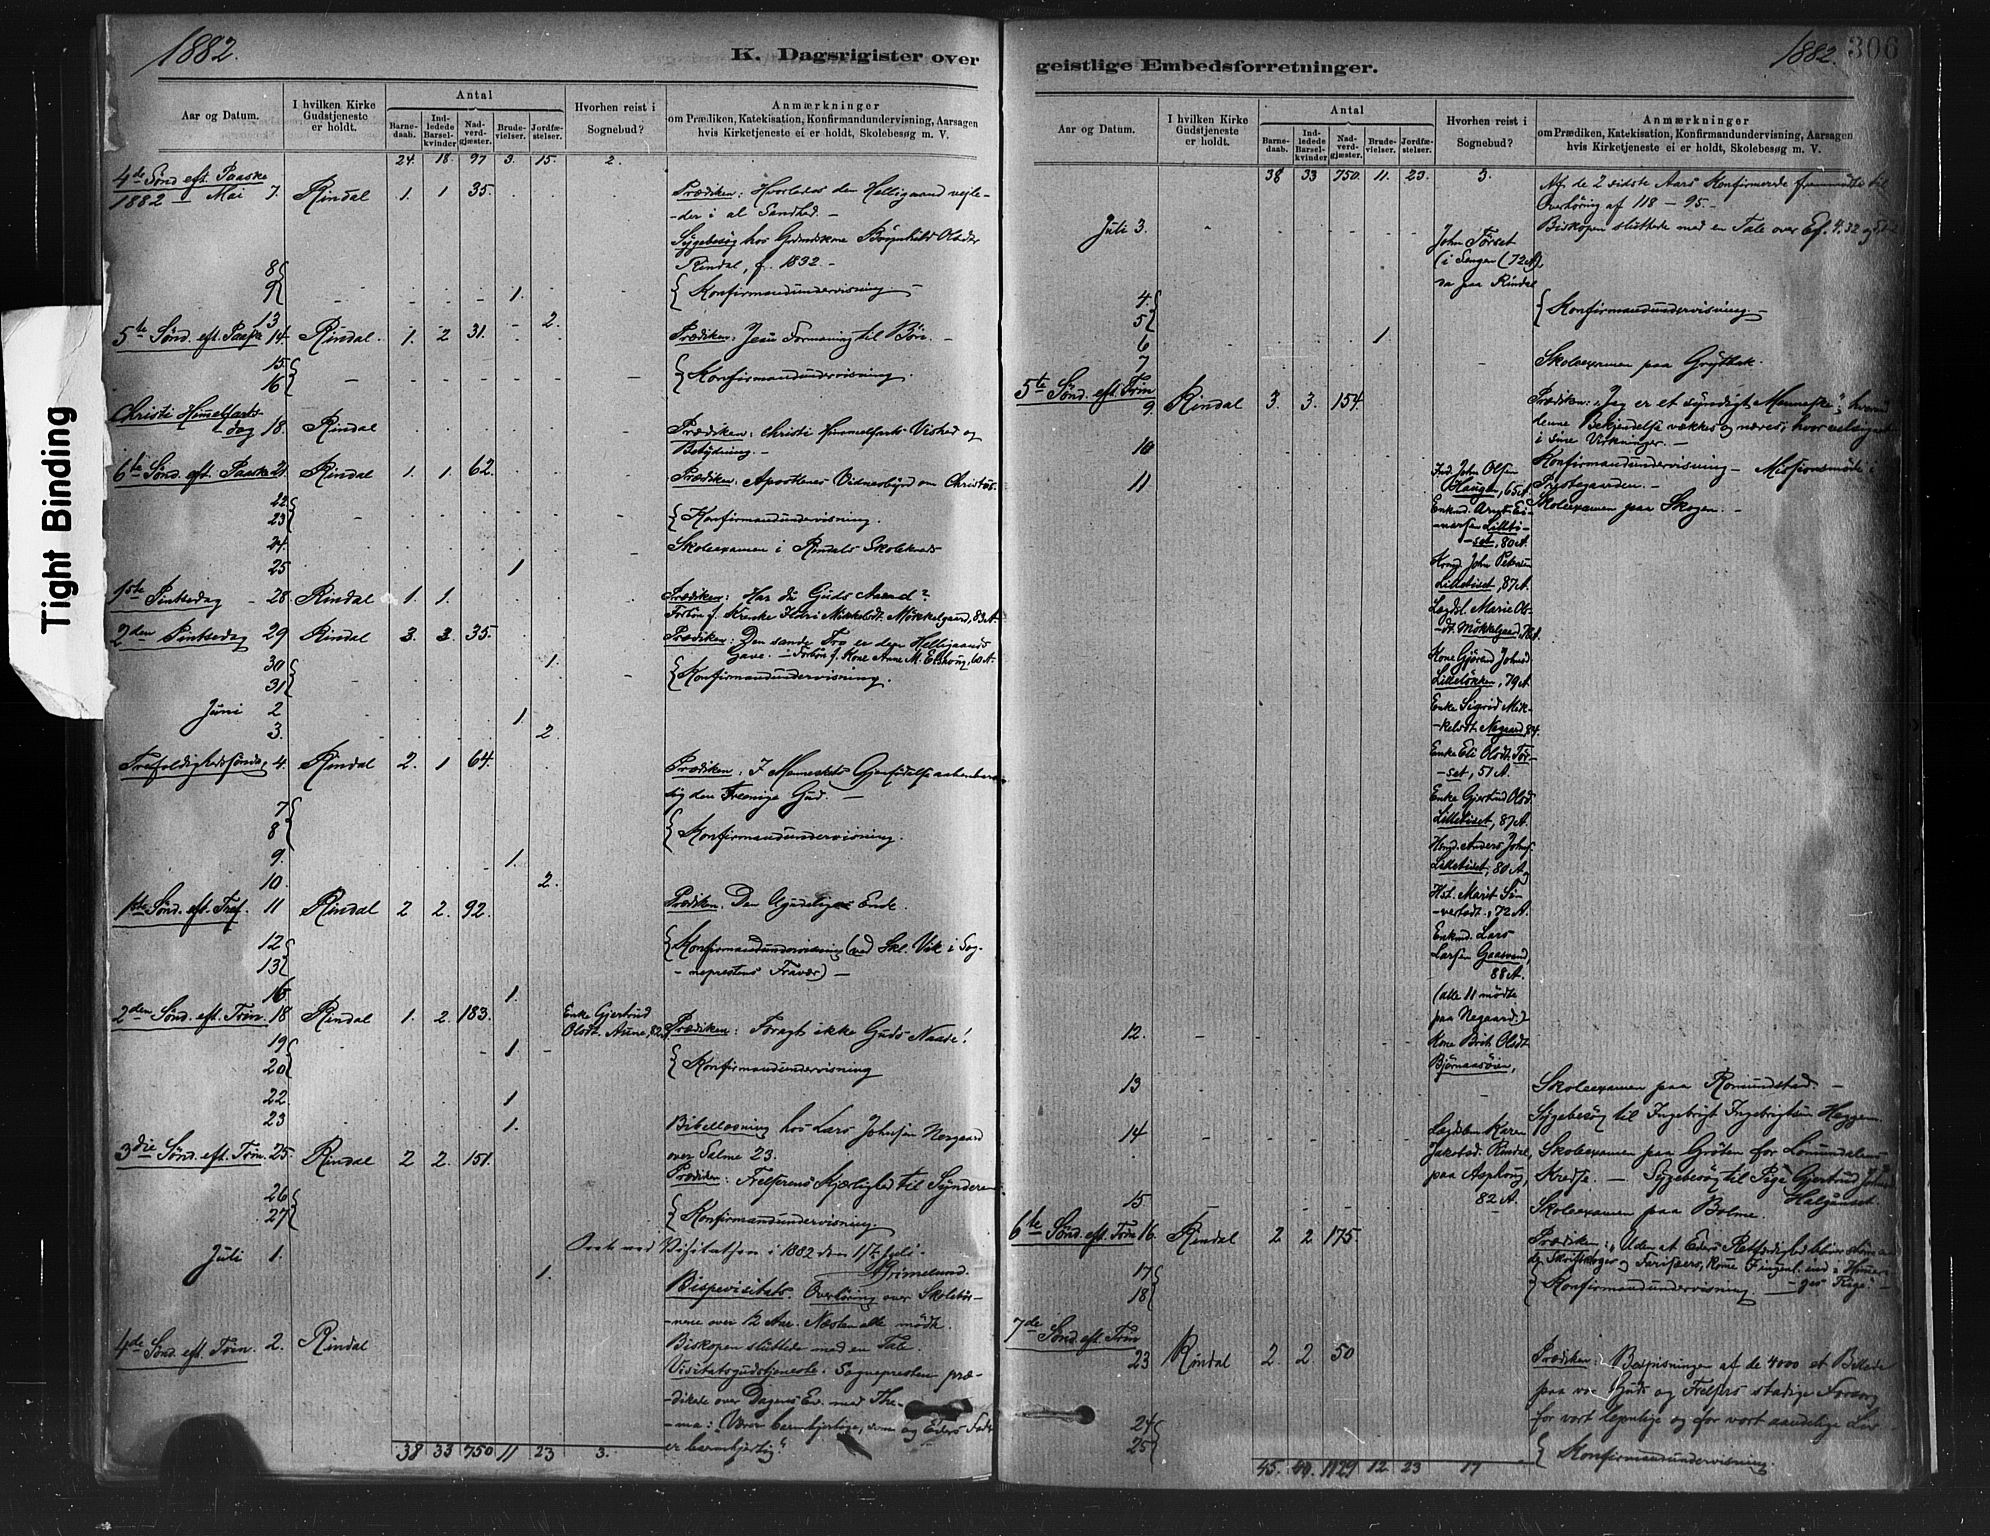 1882.
K. Dagsrigister over
Aar og Datum.
I hvilken Kirke Gudstjeneste er holdt.
Antal
Barne-daab.
Ind-ledede Barsel-kvinder
Nad-verd-gjæster.
Brude-vielser.
Jordfæ-stelser.
Hvorhen reist i Sognebud?
Anmærkninger
om Prædiken, Katekisation, Konfirmandundervisning, Aarsagen
hvis Kirketjeneste ei er holdt, Skolebesøg m. V.
24. 18. 97 3. 15. 2.
4de Sønd eft. Paaske
1882 Mai 7. Rindal 1. 1 35. Prædiken: Hvorledes den Helligaand vejle-
-der i al Sandhed. -
Sygebesøg hos
Rindal, f. 1832. -
8
9 1. Konfirmandundervisning. -
13 2.
5te Sønd. eft. Paaske 14. Rindal. 1. 2 31. Prædiken: Jesu Formaning til Bøn. -
15.
16 Konfirmandundervisning.
Christi Himmelfarts-
-dag 18. Rindal Prædiken: Christi Himmelfarts Vished og
Betydning. -
6te Sønd. eft. Paaske 21. Rindal 1. 1. 62. Prædiken: Apostlenes Vidnesbyrd om Christus.
22
23 Konfirmandundervisning.
24. Skoleexamen i Rindals Skolekreds
25 1
1ste Pintsedag - 28. Rindal 1. 1. Prædiken: Har du Guds Aand?
Forbøn f. Mikkelsdt. Mökkelgaard, 83 A.
2den Pintsedag 29 Rindal 3. 3. 35. Prædiken: Den sande Tro er den Helligaands
Gave. - Forbøn f. Kone Anne M.
30 1.
31 Konfirmandundervisning.
Juni 2 1
3. 2
Trefoldighedssøndag 4. Rindal 2. 1 64. Prædiken: I Menneskets Gjenfødelse aabenbarer
sig den Treenige Gud. -
7
8 Konfirmandundervisning.
9. 1.
10. 2.
1ste Sønd. eft. Tref. 11 Rindal 2 2. 92. Prædiken. Den Ugudeliges Ende.
12
13 Konfirmandundervisning (ved Skl. Vik i Sog-
-neprestens Fravær) -
16 1.
2den Sønd. eft. Trin. 18 Rindal 1. 2. 183. Enke Gjertrud
Olsdt. Aune, 82 Prædiken: Foragt ikke Guds Naade!
19 1.
20 Konfirmandundervisning
22. 1
23 1. Bibellæsning hos Lars Johnsen Norgaard
over Salme 23.
3die Sønd. eft. Trin. 25. Rindal 2 2. 151. Prædiken: Frelserens Kjærlighed til Syndere
26
27 Konfirmandundervisning.
Juli 1. ved Visitatsen i 1882 den 1ste Juli.
Grimelund.
1. Bispevisitats. Overhøring over Skolebør-
-nene over 12 Aar. Næsten alle mødte.
4de Sønd. eft. Trin. 2. Rindal Biskopen sluttede med en Tale.
Visitatsgudstjeneste. Sognepresten præ-
-dikede over Dagens Ev. med The-
-ma: Værer barmhjertige, som og Eders Fader
er barmhjertig."
38 33 750 11 23 3.
1882. 306
geistlige Embedsforretninger.
Aar og Datum.
I hvilken Kirke Gudstjeneste er holdt.
Antal
Barne-daab.
Ind-ledede Barsel-kvinder
Nad-verd-gjæster.
Brude-vielser.
Jordfæ-stelser.
Hvorhen reist i Sognebud?
Anmærkninger
om Prædiken, Katekisation, Konfirmandundervisning, Aarsagen
hvis Kirketjeneste ei er holdt, Skolebesøg m. V.
38 33 750. 11. 23. 3. Af de 2 sidste Aars Konfirmerede fremmødte til
Overhøring af 118 - 95. -
Biskopen sluttede med en Tale over Ef. 4,32 og 5,1-2
Juli 3. John Törset
(i Sengen (72 A),
da paa Rindal
4.
5 Konfirmandundervisning. -
6 1
7 Skoleexamen paa Grytbak.
5te Sønd. eft. Trin
9. Rindal 3. 3. 154. Prædiken: "Jeg er et syndigt Menneske";
denne Bekjendelse vækkes og næres;
i sine Virkninger. -
10 Konfirmandundervisning - Missionsmøde i
Prestegaarden. -
11 Ind. John Olsen
Haugen, 65 A.
Enkmd. Arnt Ei-
-narsen Lillebö-
-set, 80 A.
Skoleexamen paa Skogen. -
John Pedersen
Lillebøset, 87 A.
Lægdsl. Marie Ols-
dt. Mökkelgaard,
Kone Gjörand Johnsd
Lillelökken, 79 A.
Enke Sigrid Mik-
-kelsdt. Negaard, 84.
Enke Eli Olsdt. Tör-
-set, 51 A.
Enke Gjertrud Olsd.
Lillebøset, 87 A.
Hmd. Anders Johns.
Lillebøset, 80 A. og
Hst. Marit Si-
-vertsdt., 72 A.
Enkmd. Lars
Larsen Gaasvand,
88 A.
(alle 11 mødte
paa Negaard.)
12. Kone Brit Olsdt
Bjørnaasøien,
13 Skoleexamen paa Romundstad. -
Sygebesøg til Ingebrigt Ingebrigtsen Heggem
14 Lægdslem Karen
Jakobsd. Rindal,
paa Asphoug,
82 A.
Skoleexamen paa Gröten for Lomundalens
Kreds. - Sygebesøg til Pige Gjertrud
15 Skoleexamen paa Bolme.
6te Sønd. eft. Trin 16. Rindal 2 2 175 Prædiken: "Uden at Eders Retfærdighed bliver større
de Skriftkloges og Farisæers, komme I ingenl. ind i Himme-
ges Rige."
17
18 Konfirmandundervisning. -
7de Sønd. eft. Trin
23 Rindal 2. 2. 50 Prædiken: Bespisningen af de 4000 et Billede
paa vor Guds og Frelsers stadige Forsorg
for vort legemlige og for vort aandelige Liv.
24
25 Konfirmandundervisning.
45. 40. 1129 12. 23 17
Tight Binding